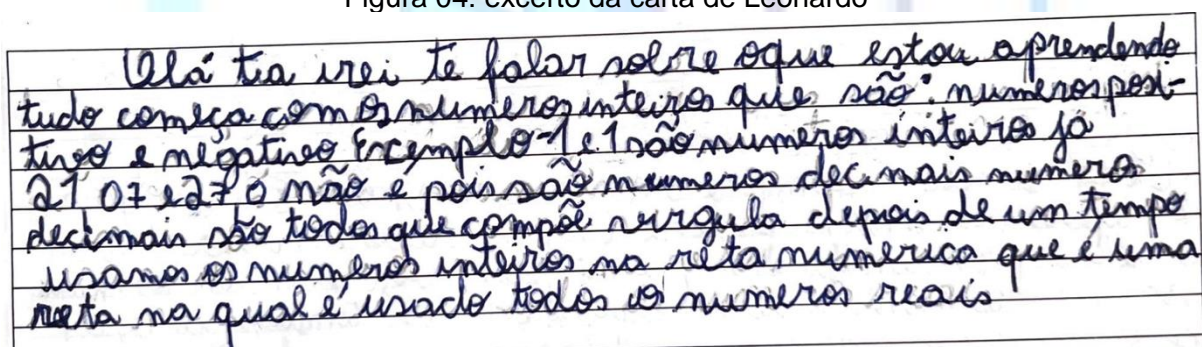 Figura 04: excerto da carta de Leonardo
Olá tia irei te falar sobre oque estou aprendendo
tudo começa com os numeros inteiros que são: numeros posi-
tivos e negativos Excemplo -1 e 1 são numeros inteiros já
21 07 e 27 0 não é pois são numeros decimais numeros
decimais são todos que compõe virgula depois de um tempo
usamos os numeros inteiros na reta numerica que é uma
reta na qual é usado todos os numeros reais